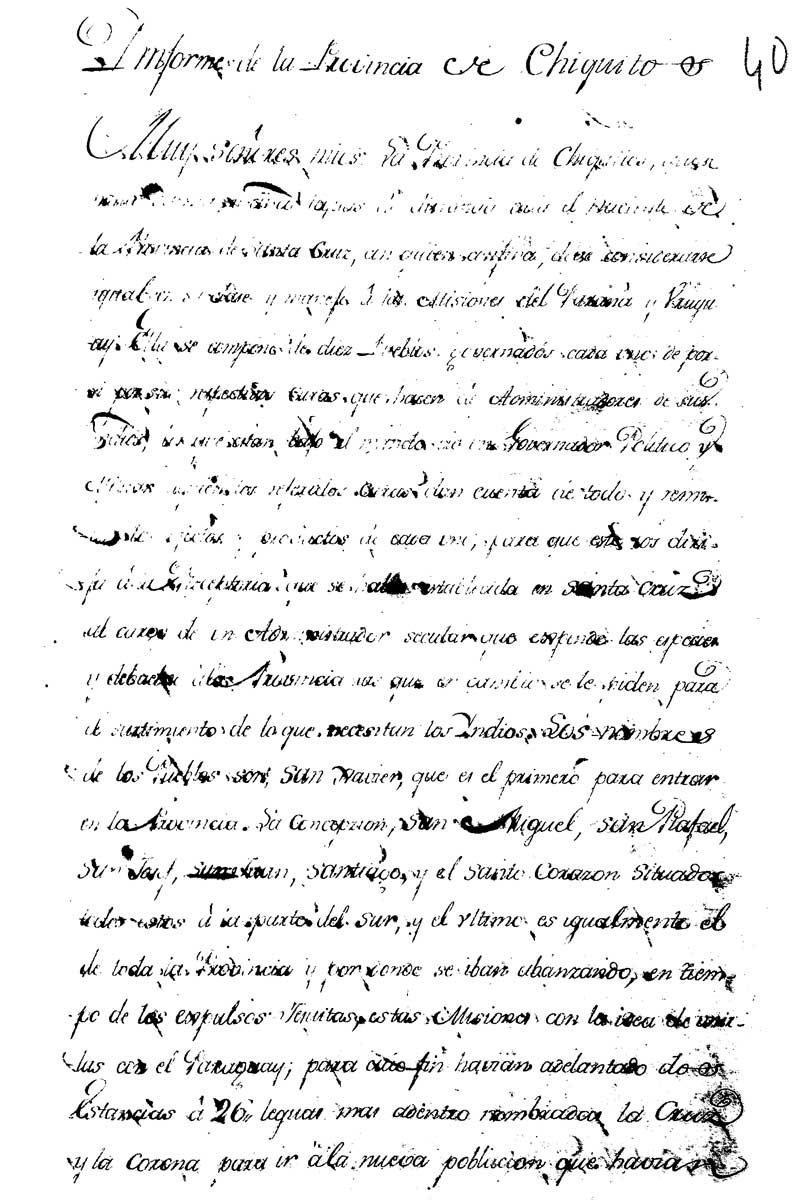 Informe de la Provincia de Chiquitos
40
Muy señores mios La Provincia de Chiquitos, que
leguas de distancia acia el Naciente de
la Provincia de Santa Cruz, con quien confina, deve considerarse
igual en su clase y manejo à las Misiones del Paranà y Urugu
ay. Ella se compone de diez Pueblos governados cada uno de por
si por sus respectivos Curas que hacen de Administradores de sus
estan bajo el mando de un Governador Politico y
Militar los referidos Curas dan cuenta de todo y remi-
y productos de cada uno, para que este los diri-
ja à la Receptoria que se halla establecida en Santa Cruz
al cargo de un Administrador secular que expende las especies
y debuelve à la Provincia las que en cambio se le piden para
el surtimiento de lo que necesitan los Indios. Los nombres
de los Pueblos son, San Xavier, que es el primero para entrar
en la Provincia. La Concepcion, San Miguel, San Rafael,
San Josef, San Juan, Santiago, y el Santo Corazon situados
todos estos à la parte del sur, y el ultimo es igualmente el
de toda la Provincia y por donde se iban abanzando, en tiem-
po de los expulsos Jesuitas, estas Misiones con la idea de unir-
las con el Paraguay; para cuio fin havian adelantado dos
Estancias à 26 leguas mas adentro nombradas la Cruz
y la Corona para ir à la nueva poblacion que havian